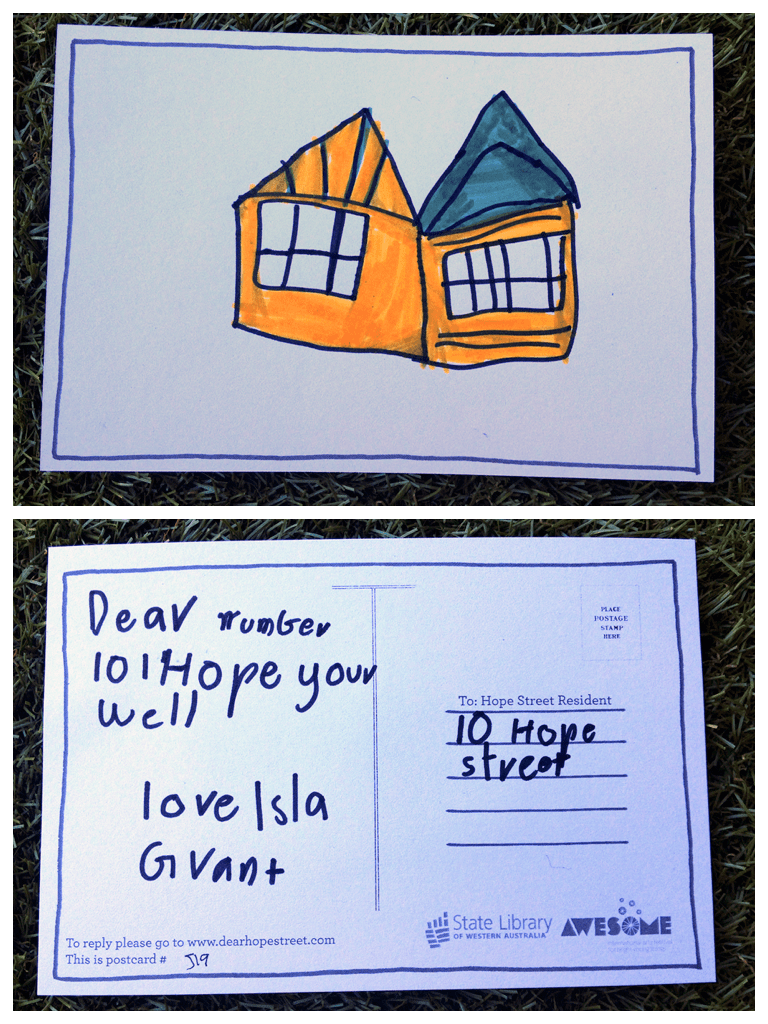 Dear number
10 I Hope your
well
love Isla
Grant
To reply please go to www.dearhopestreet.com
This is postcard # J19
PLACE
POSTAGE
STAMP
HERE
To: Hope Street Resident
10 Hope
street
State Library
OF WESTERN AUSTRALIA
AWESOME